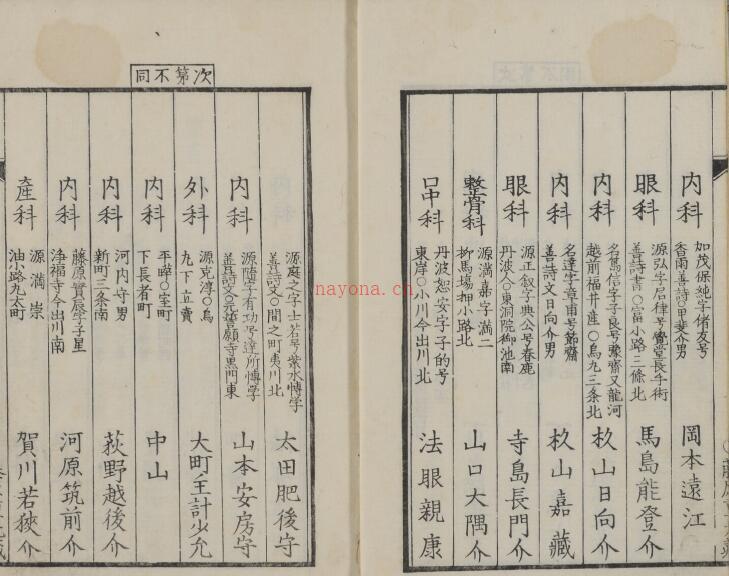 内科
加茂保純字脩友号
香雨善詩〇甲斐介男
岡本遠江介
眼科
源弘字后律号覺堂長手術
善詩書〇富小路三條北
馬島能登介
内科
名篤信字子良号豫齋又龍河
越前福井産〇烏丸三条北
杦山日向介
内科
名達字章甫号節齋
善詩文日向介男
杦山嘉藏
眼科
源正叙字典公号春鹿
丹波人〇東洞院御池南
寺島長門介
整骨科
源満嘉字満二
柳馬場押小路北
山口大隅介
口中科
丹波恕安字子的号
東岸〇小川今出川北
法眼親康
次第不同
源庭之字士若号紫水愽学
善詩文〇間之町夷川北
太田肥後守
内科
源隨字有功号達所愽学
善詩文〇元誓願寺黒門東
山本安房守
外科
源克淳〇烏
丸下立賣
大町主計少允
内科
平暲〇室町
下長者町
中山
内科
河内守男
新町三条南
荻野越後介
内科
藤原實辰字子星
浄福寺今出川南
河原筑前介
産科
源満崇
油小路丸太町
賀川若狹介
nayona.cn